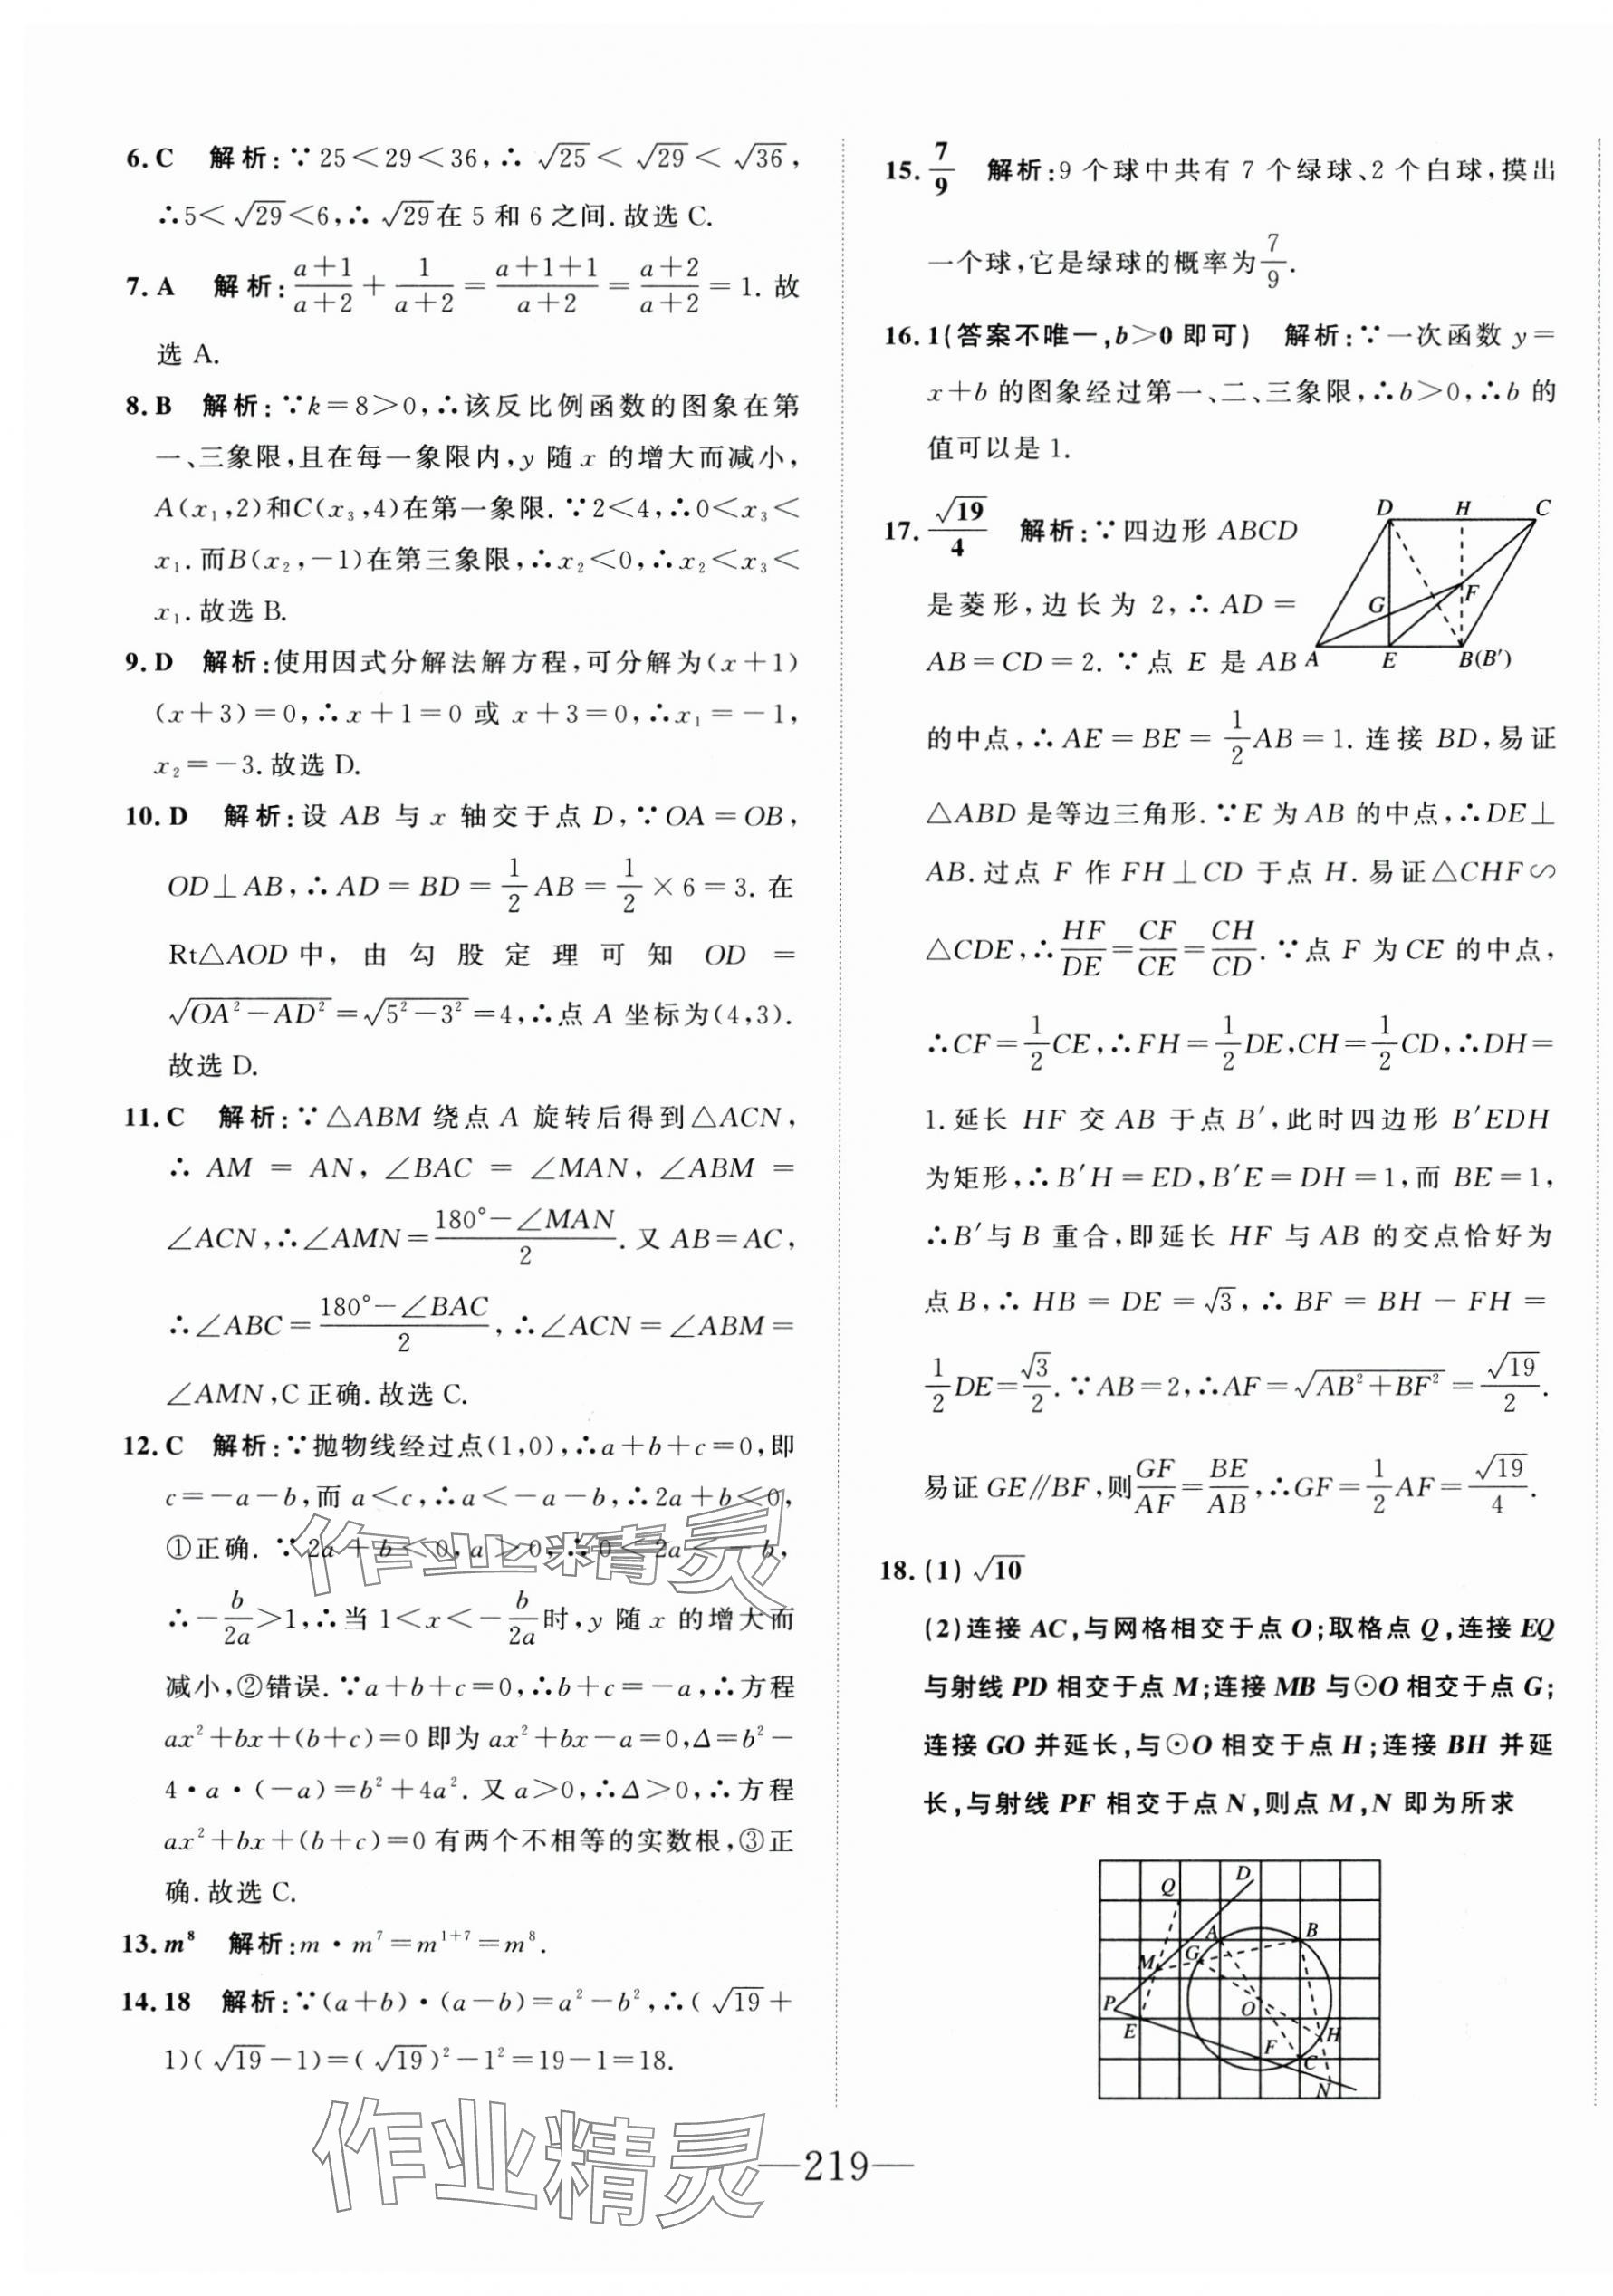 6. C 解析:∵25<29<36,∴√25<√29<√36,
∴5<√29<6,∴√29在 5 和 6 之间.故选 C.
7. A 解析:(a+1)/(a+2)+1/(a+2)=(a+1+1)/(a+2)=(a+2)/(a+2)=1. 故
选 A.
8. B 解析:∵k=8>0,∴该反比例函数的图象在第
一、三象限,且在每一象限内,y 随 x 的增大而减小,
A(x₁,2)和C(x₃,4)在第一象限.∵2<4,∴0<x₃<
x₁.而B(x₂,-1)在第三象限,∴x₂<0,∴x₂<x₃<
x₁.故选 B.
9. D 解析:使用因式分解法解方程,可分解为(x+1)
(x+3)=0,∴x+1=0 或 x+3=0,∴x₁=-1,
x₂=-3.故选 D.
10. D 解析:设 AB 与 x 轴交于点 D,∵OA=OB,
OD⊥AB,∴AD=BD=1/2 AB=1/2×6=3. 在
Rt△AOD中,由勾股定理可知 OD=
√(OA²-AD²)=√(5²-3²)=4,∴点 A 坐标为(4,3).
故选 D.
11. C 解析:∵△ABM 绕点 A 旋转后得到△ACN,
∴AM=AN,∠BAC=∠MAN,∠ABM=
∠ACN,∴∠AMN=(180°-∠MAN)/2.又 AB=AC,
∴∠ABC=(180°-∠BAC)/2,∴∠ACN=∠ABM=
∠AMN,C 正确.故选 C.
12. C 解析:∵抛物线经过点(1,0),∴a+b+c=0,即
c=-a-b,而 a<c,∴a<-a-b,∴2a+b<0,
①正确.∵2a+b<0,a>0,∴0<2a<-b,
∴-b/2a>1,∴当 1<x<-b/2a时,y 随 x 的增大而
减小,②错误.∵a+b+c=0,∴b+c=-a,∴方程
ax²+bx+(b+c)=0 即为 ax²+bx-a=0,Δ=b²-
4·a·(-a)=b²+4a².又 a>0,∴Δ>0,∴方程
ax²+bx+(b+c)=0 有两个不相等的实数根,③正
确.故选 C.
13. m⁸ 解析:m·m⁷=m¹⁺⁷=m⁸.
14. 18 解析:∵(a+b)·(a-b)=a²-b²,∴(√19+
1)(√19-1)=(√19)²-1²=19-1=18.
15. 7/9 解析:9 个球中共有 7 个绿球、2 个白球,摸出
一个球,它是绿球的概率为7/9.
16. 1(答案不唯一,b>0 即可) 解析:∵一次函数 y=
x+b 的图象经过第一、二、三象限,∴b>0,∴b 的
值可以是 1.
17. √19/4 解析:∵四边形 ABCD
是菱形,边长为 2,∴AD=
AB=CD=2.∵点 E 是 AB
D H C
G F
A E B(B′)
的中点,∴AE=BE=1/2 AB=1.连接 BD,易证
△ABD 是等边三角形.∵E 为 AB 的中点,∴DE⊥
AB.过点 F 作 FH⊥CD 于点 H.易证△CHF∽
△CDE,∴HF/DE=CF/CE=CH/CD.∵点 F 为 CE 的中点,
∴CF=1/2 CE,∴FH=1/2 DE,CH=1/2 CD,∴DH=
1.延长 HF 交 AB 于点 B′,此时四边形 B′EDH
为矩形,∴B′H=ED,B′E=DH=1,而 BE=1,
∴B′与 B 重合,即延长 HF 与 AB 的交点恰好为
点 B,∴HB=DE=√3,∴BF=BH-FH=
1/2 DE=√3/2.∵AB=2,∴AF=√(AB²+BF²)=√19/2.
易证 GE∥BF,则GF/AF=BE/AB,∴GF=1/2 AF=√19/4.
18. (1)√10
(2)连接 AC,与网格相交于点 O;取格点 Q,连接 EQ
与射线 PD 相交于点 M;连接 MB 与⊙O 相交于点 G;
连接 GO 并延长,与⊙O 相交于点 H;连接 BH 并延
长,与射线 PF 相交于点 N,则点 M,N 即为所求
Q D
A B
M G
P O
E H
F C
N
—219—
作业精灵
作业精灵